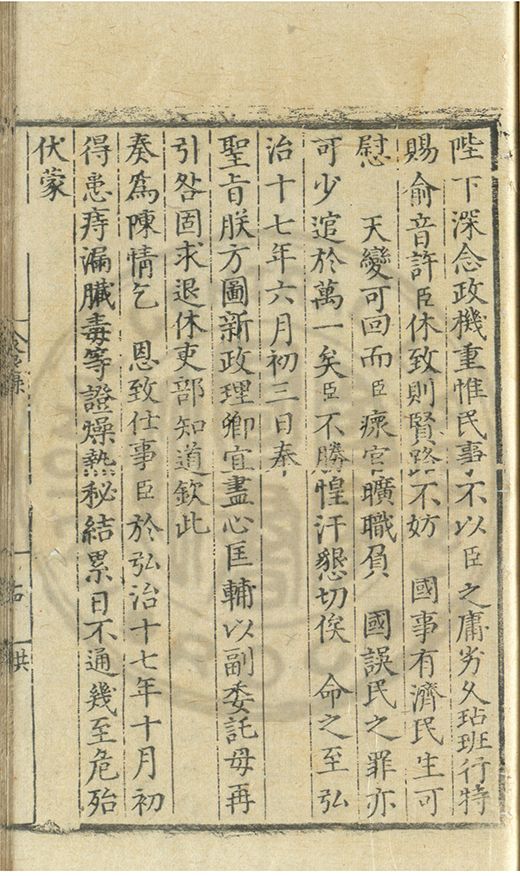 陛下深念政機重惟民事不以臣之庸劣久玷班行特
賜俞音許臣休致則賢路不妨 國事有濟民生可
慰 天變可回而臣瘝官曠職負 國誤民之罪亦
可少逭於萬一矣臣不勝惶汗懇切俟 命之至弘
治十七年六月初三日奉
聖旨朕方圖新政理卿宜盡心匡輔以副委託毋再
引咎固求退休吏部知道欽此
奏為陳情乞 恩致仕事臣於弘治十七年十月初
得患痔漏臟毒等證燥熱秘結累日不通幾至危殆
伏蒙